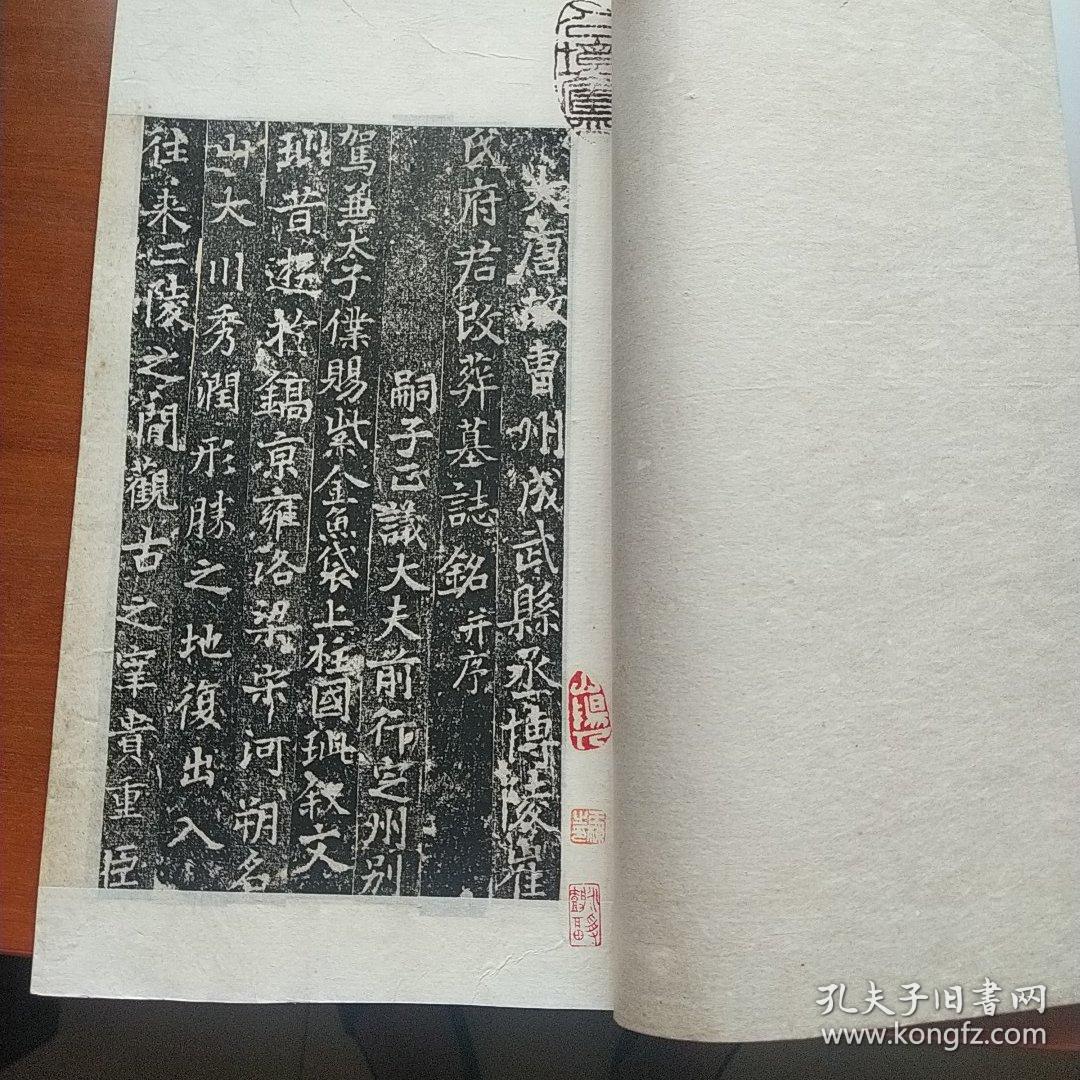 大唐故曹州成武縣丞博陵崔
氏府君改葬墓誌銘并序
嗣子正議大夫前行定州别
駕兼太子僕賜紫金魚袋上柱國璵叙文
璵昔遊於鎬京雍洛梁宋河朔名
山大川秀潤形勝之地復出入
往来二陵之間觀古之宰貴重臣
孔夫子旧书网
www.kongfz.com